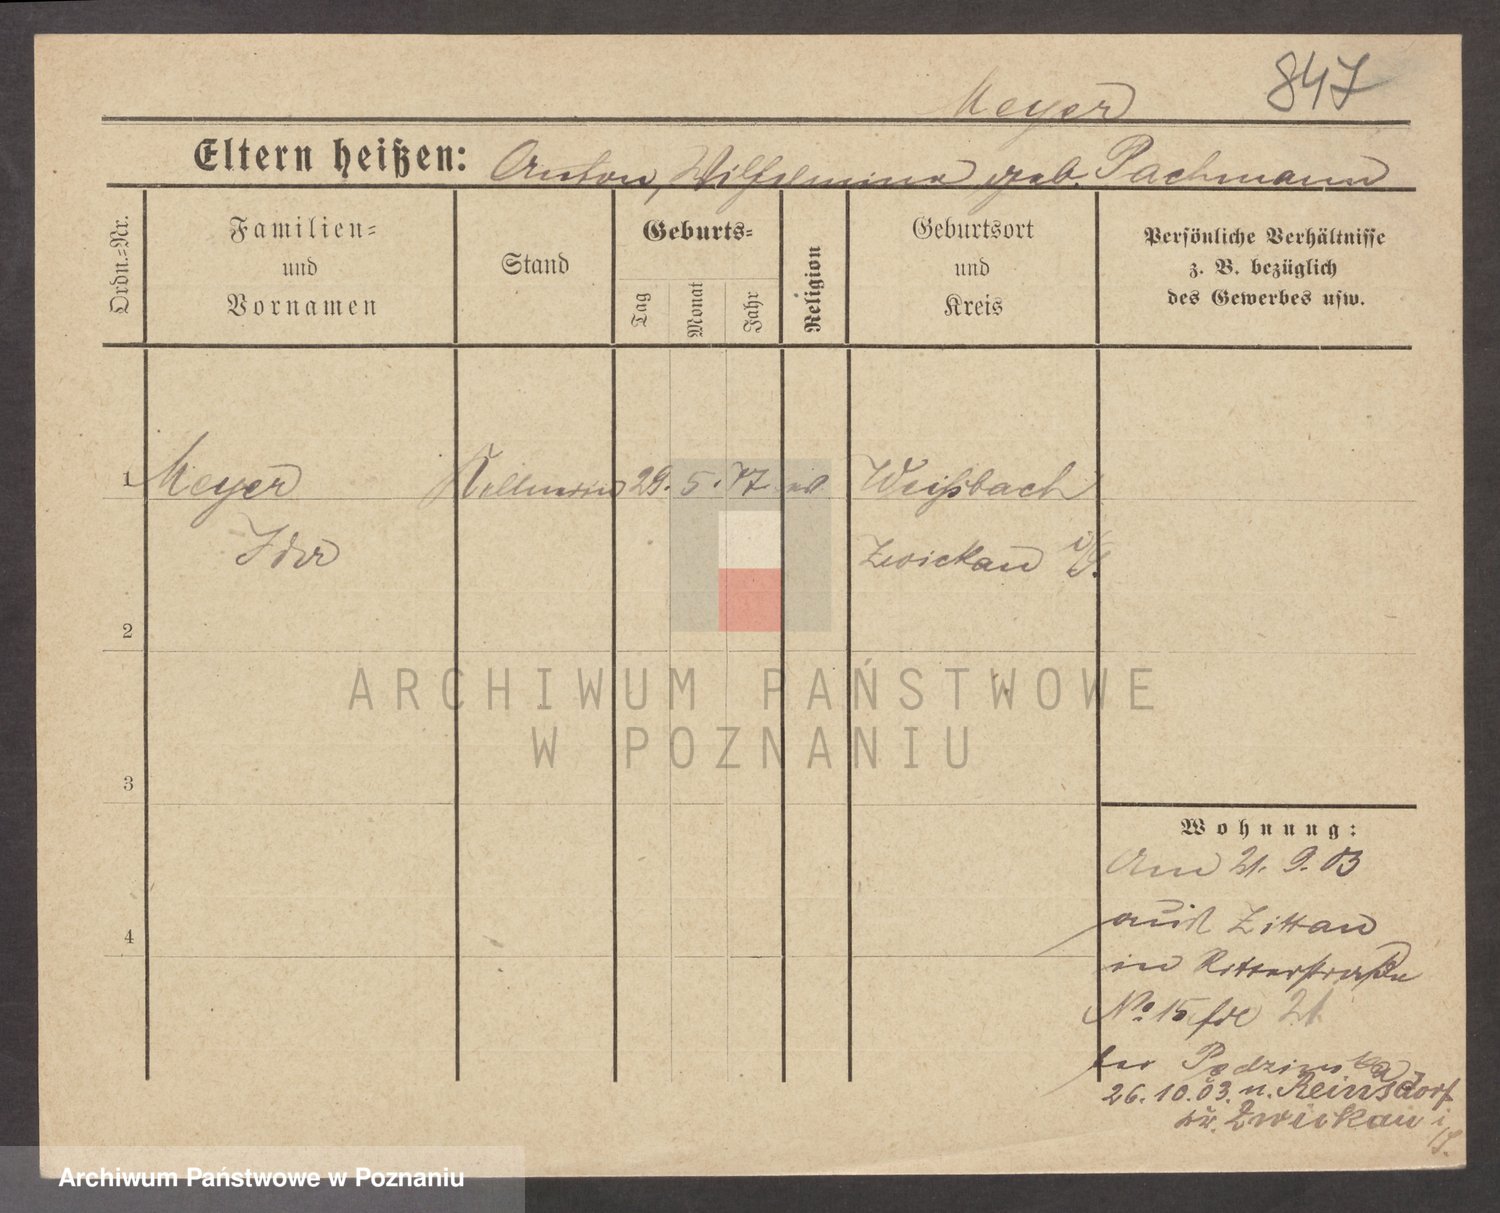 847
Meyer
Eltern heißen: Anton, Wilhelmina geb. Pachmann
Ordn.-Nr.
Familien-
und
Vornamen
Stand
Geburts-
Tag
Monat
Jahr
Religion
Geburtsort
und
Kreis
Persönliche Verhältnisse
z. B. bezüglich
des Gewerbes usw.
1 Meyer Kellnerin 29. 5. 77 ev Weißbach
Ida Zwickau i/S.
2
ARCHIWUM PAŃSTWOWE
W POZNANIU
3
Wohnung:
Am 21. 9. 03
aus Zittau
4
in Ritterstraße
No 15
bei
26. 10. 03. n. Reinsdorf
Kr. Zwickau i/S.
Archiwum Państwowe w Poznaniu